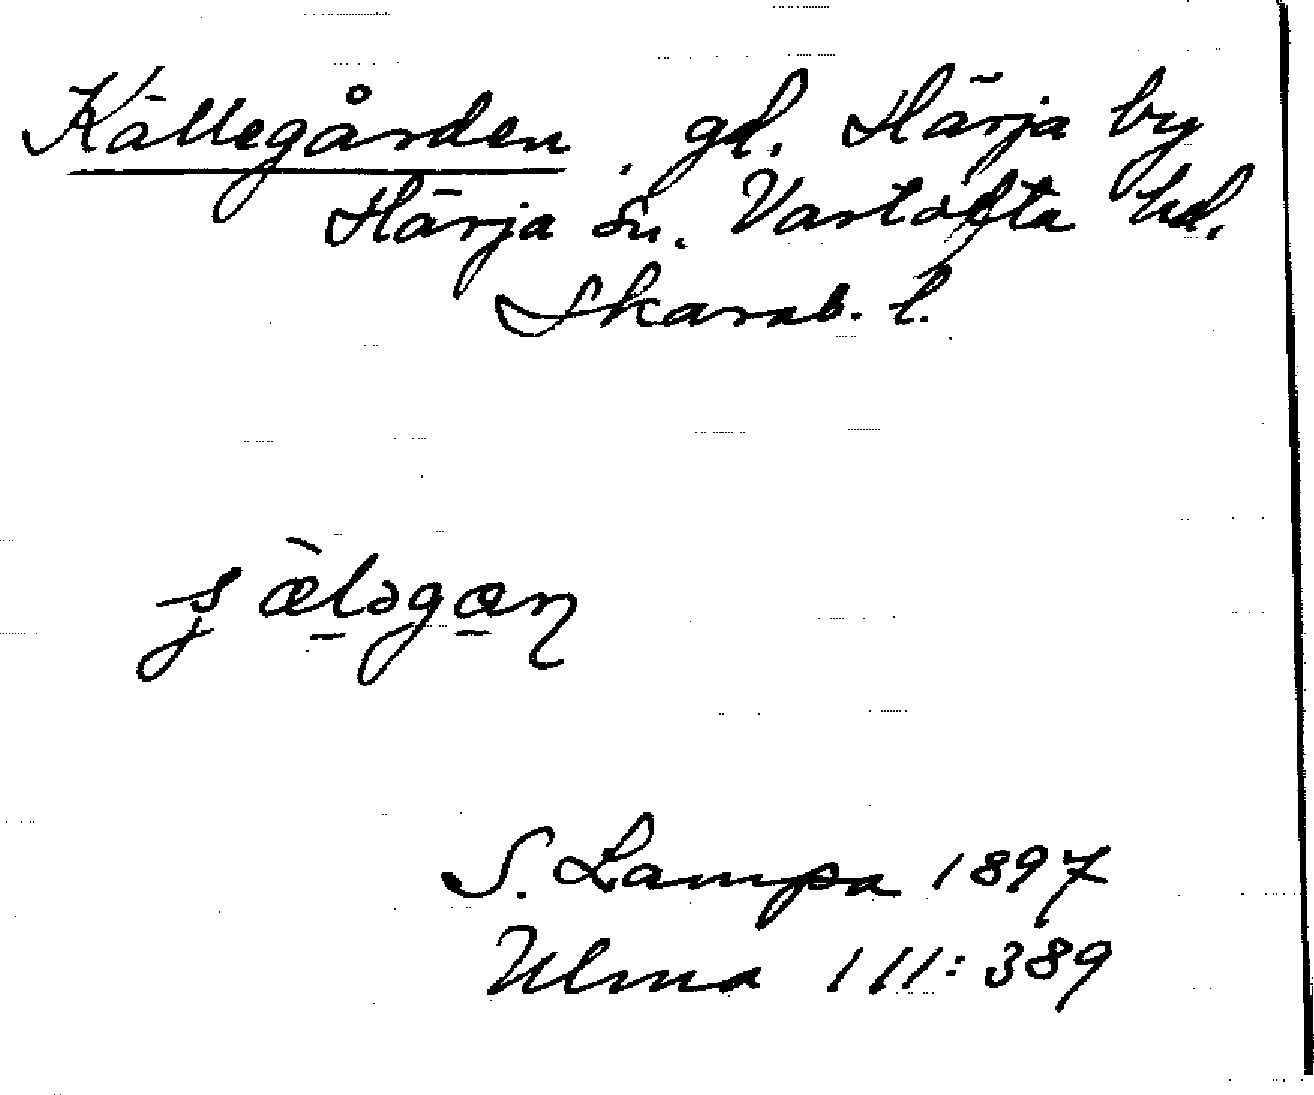 Källegården, gd. Härja by
Härja sn. Vartofta hd.
Skarab. l.
S. Lampa 1897
Ulma 111:389